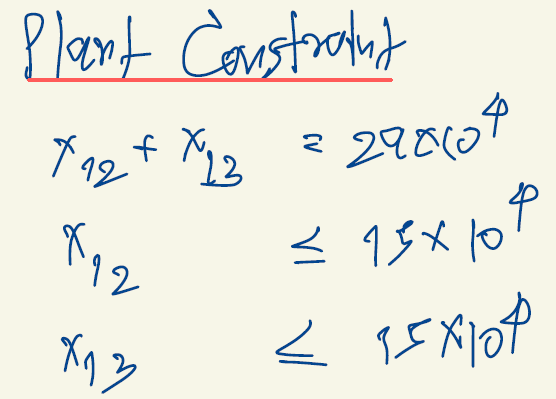 Plant Constraint
x₁₂ + x₁₃ = 29×10⁴
x₁₂ ≤ 15×10⁴
x₁₃ ≤ 15×10⁴